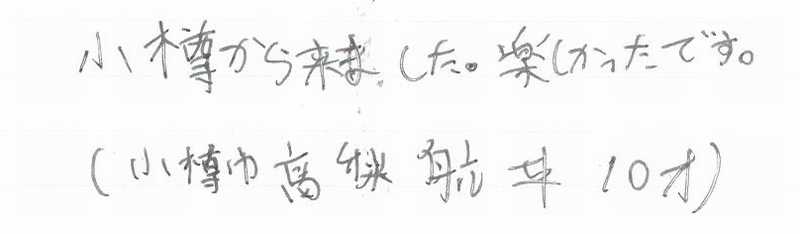 小樽から来ました。楽しかったです。
(小樽市 高 航 10才)